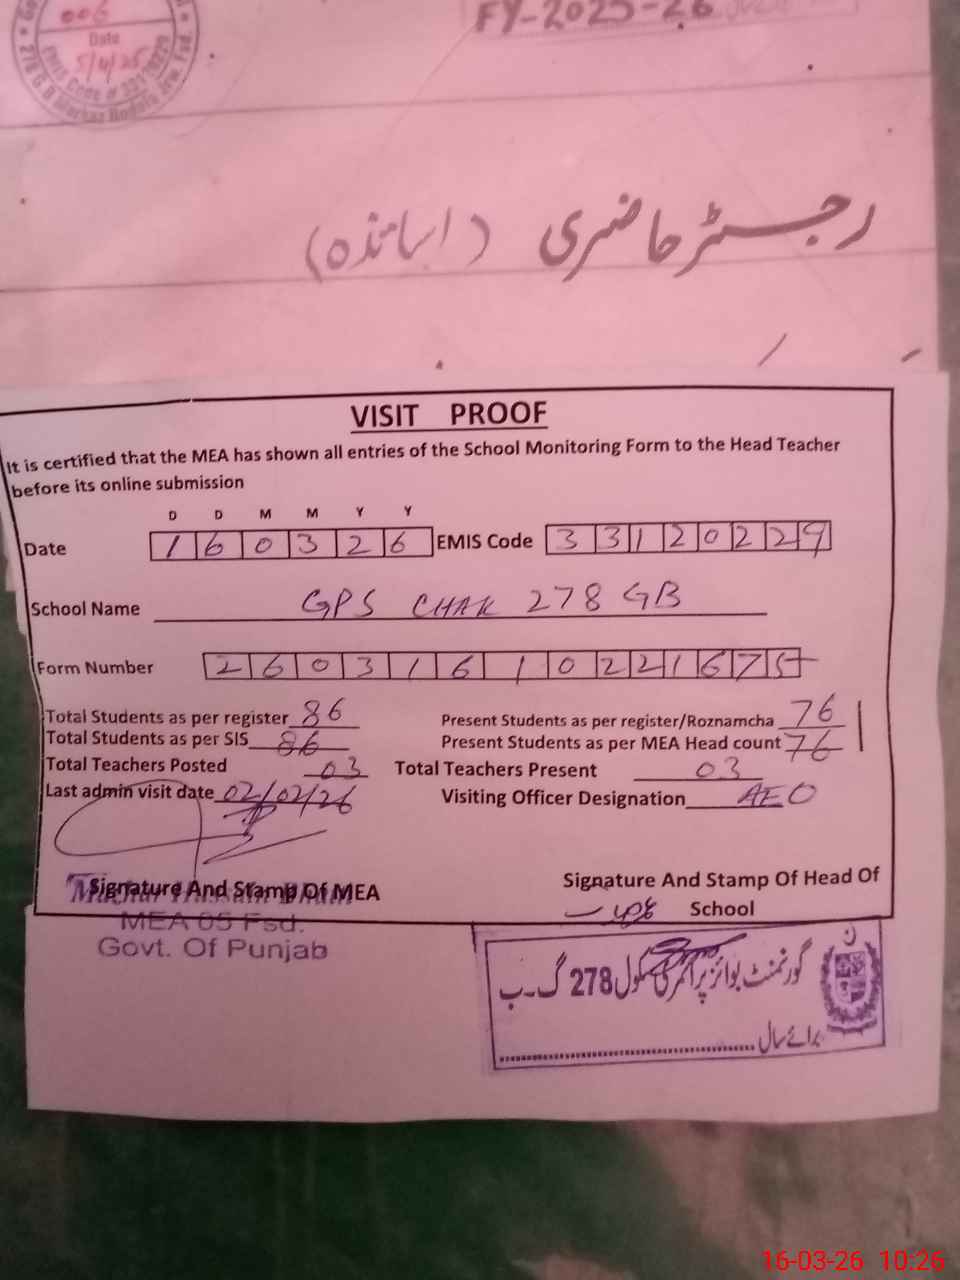 FY-2025-26
006
Date
5/4/25
رجسٹر حاضری (اساتذہ)
VISIT PROOF
It is certified that the MEA has shown all entries of the School Monitoring Form to the Head Teacher
before its online submission
D D M M Y Y
Date 1 6 0 3 2 6 EMIS Code 3 3 1 2 0 2 2 9
School Name GPS CHAK 278 GB
Form Number 2 6 0 3 1 6 1 0 2 2 1 6 7 5
Total Students as per register 86 Present Students as per register/Roznamcha 76
Total Students as per SIS 86 Present Students as per MEA Head count 76
Total Teachers Posted 03 Total Teachers Present 03
Last admin visit date 02/02/26 Visiting Officer Designation AEO
Signature And Stamp Of MEA Signature And Stamp Of Head Of
School
MEA 05 Fsd.
Govt. Of Punjab
گورنمنٹ بوائز پرائمری سکول 278 گ۔ب
برائے سال
16-03-26 10:26